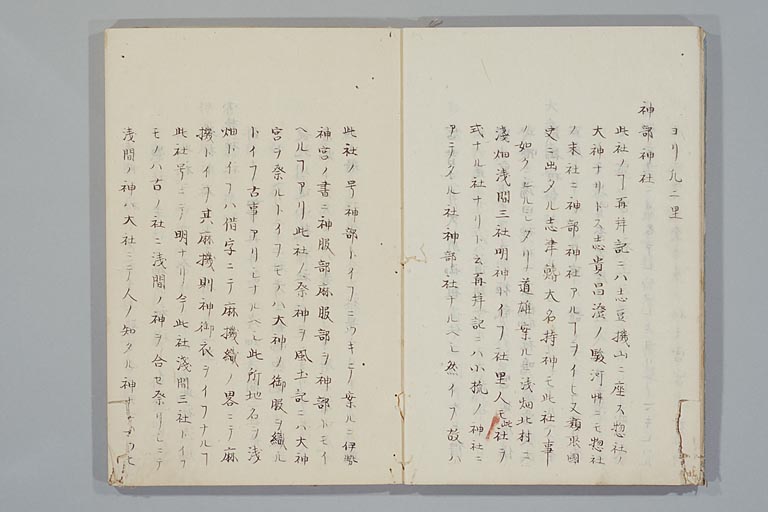 ヨリ九二里
神部神社
此社ノヿ再拝記ニハ志豆機山ニ座ス惣社ノ
大神ナリトス志貴昌澄ノ駿河州ニモ惣社
ノ末社ニ神部神社アルヿヲイヒ又類聚国
史ニ出タル志津轉大名持神モ此社ノ事
ノ如クシルシタリ道雄案ル浅畑北村ニ
淺畑浅間三社明神トイフ社里人モ此社ヲ
式ナル社ナリト云再拝記ニハ小梳ノ神社ニ
アテタル社神部社ナルヘシ然イフ故ハ
此社ノ号神部トイフニツキテ案ルニ伊勢
神宮ノ書ニ神服部麻服部ヲ神部トモイ
ヘルヿアリ此社ノ祭神ヲ風土記ニハ大神
宮ヲ祭ルトイフモテハ大神ノ御服ヲ織ル
トイフ古事アリシナルヘシ此所地名ヲ浅
畑トイフハ借字ニテ麻機織ノ畧ニテ麻
機トイフ其麻機則神御衣ヲイフナルヿ
此社号ニテ明ナリ今此社淺間三社トイフ
モノハ古ノ社ニ浅間ノ神ヲ合セ祭リシニテ
淺間ノ神ハ大社ニテ人ノ知タル神